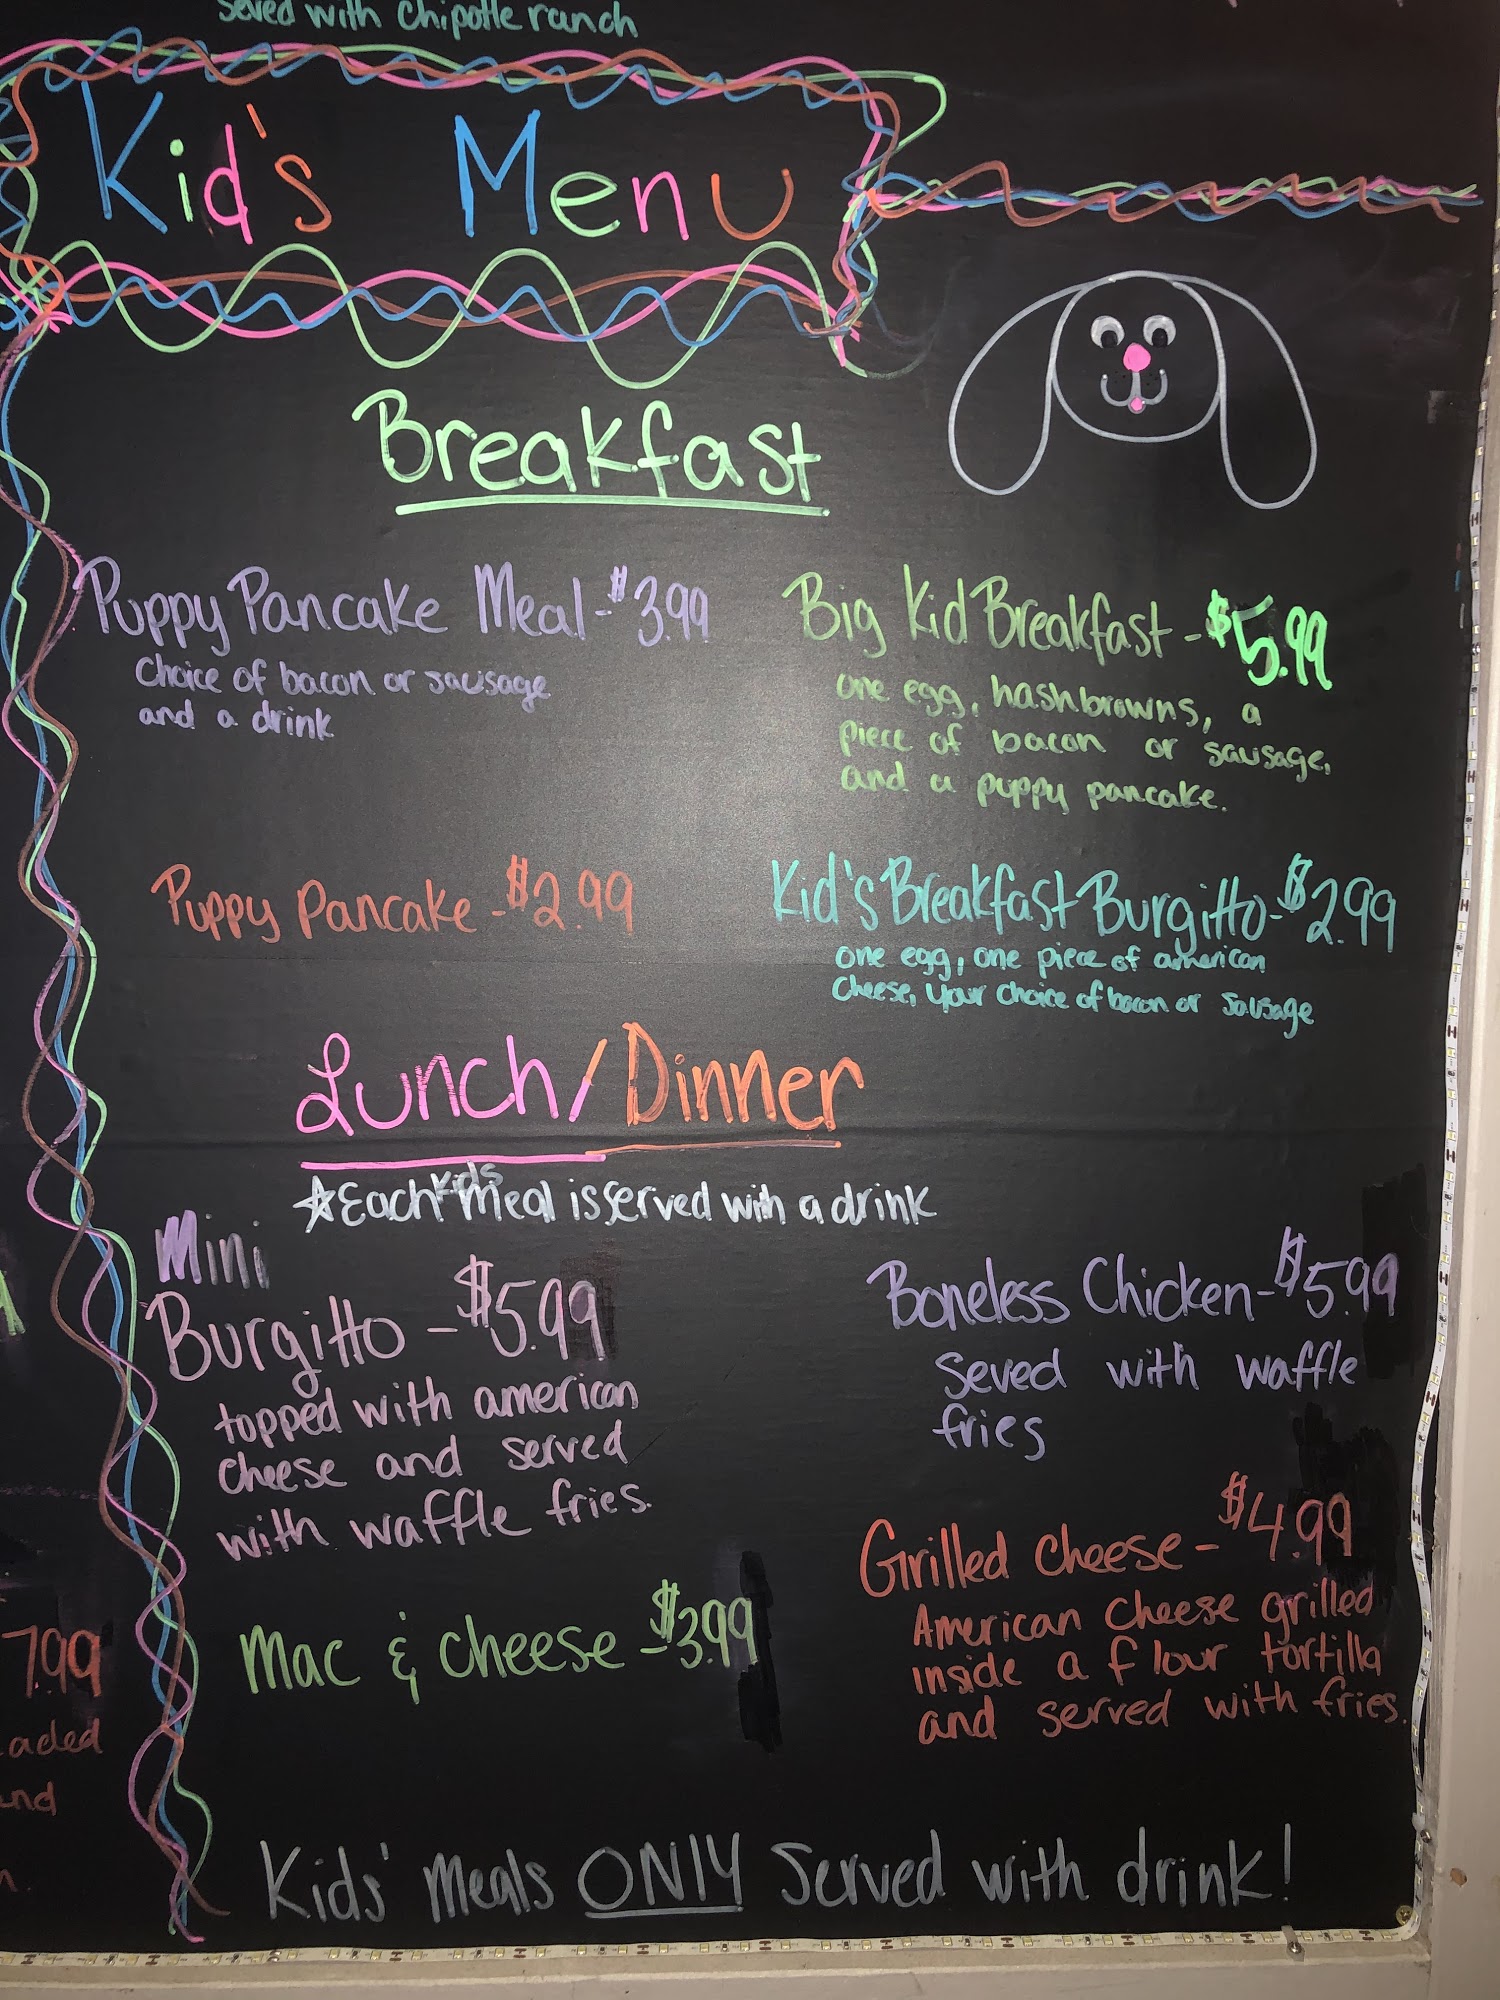 Seved with Chipotle ranch
Kid's Menu
Breakfast
Puppy Pancake Meal - $3.99
Choice of bacon or sausage
and a drink
Big Kid Breakfast - $5.99
one egg, hashbrowns, a
piece of bacon or sausage,
and a puppy pancake.
Puppy Pancake - $2.99
Kid's Breakfast Burgitto - $2.99
one egg, one piece of american
cheese, your choice of bacon or sausage
Lunch/Dinner
☆ Each kids meal is served with a drink
Mini
Burgitto - $5.99
topped with american
cheese and served
with waffle fries.
Boneless Chicken - $5.99
Seved with waffle
fries
Mac & cheese - $3.99
Grilled cheese - $4.99
American cheese grilled
inside a flour tortilla
and served with fries.
7.99
aded
and
Kids' meals ONLY Served with drink!